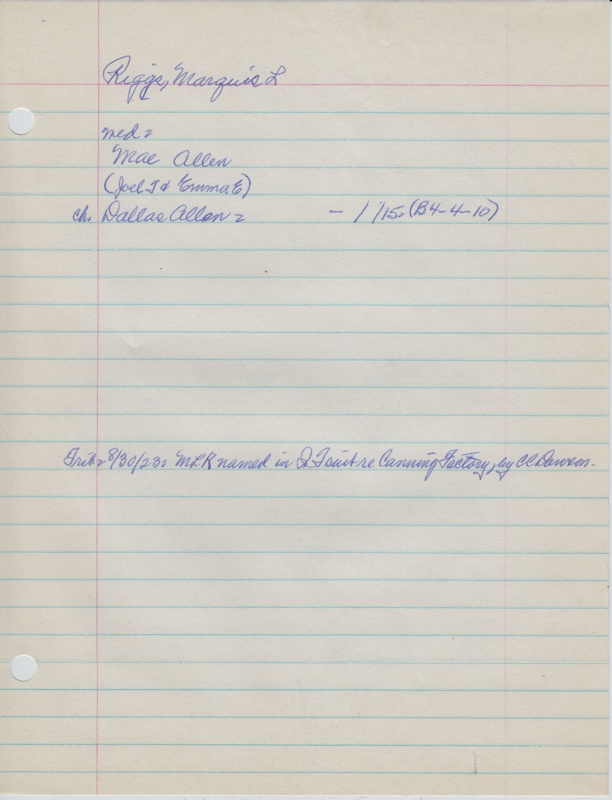 Riggs, Marquis L
med =
Mae Allen
(Joel T & Emma E)
ch. Dallas Allen = - / 1/15= (B4-4-10)
Trib= 8/30/23= MLR named in suit re Canning Factory, by CC Dawson.